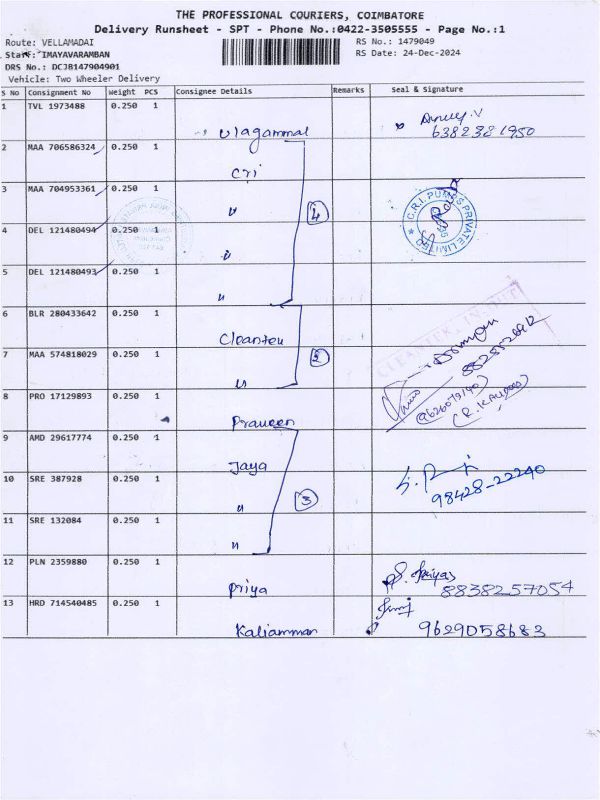 THE PROFESSIONAL COURIERS, COIMBATORE
Delivery Runsheet - SPT - Phone No.:0422-3505555 - Page No.:1
Route: VELLAMADAI RS No.: 1479049
Staff: IMAYAVARAMBAN RS Date: 24-Dec-2024
DRS No.: DCJB147904901
Vehicle: Two Wheeler Delivery
S No Consignment No Weight PCS Consignee Details Remarks Seal & Signature
1 TVL 1973488 0.250 1 Ulagammal 6382381950
2 MAA 706586324 0.250 1 Cri
3 MAA 704953361 0.250 1 " 4 C.R.I. PUMPS PRIVATE LIMITED
4 DEL 121480494 0.250 1 "
5 DEL 121480493 0.250 1 "
6 BLR 280433642 0.250 1
7 MAA 574818029 0.250 1 " 2
8 PRO 17129893 0.250 1 Praveen
9 AMD 29617774 0.250 1 Jaya
10 SRE 387928 0.250 1 " 3 98428-22240
11 SRE 132084 0.250 1 "
12 PLN 2359880 0.250 1 Priya 8838257054
13 HRD 714540485 0.250 1 Kaliamman 9629058683